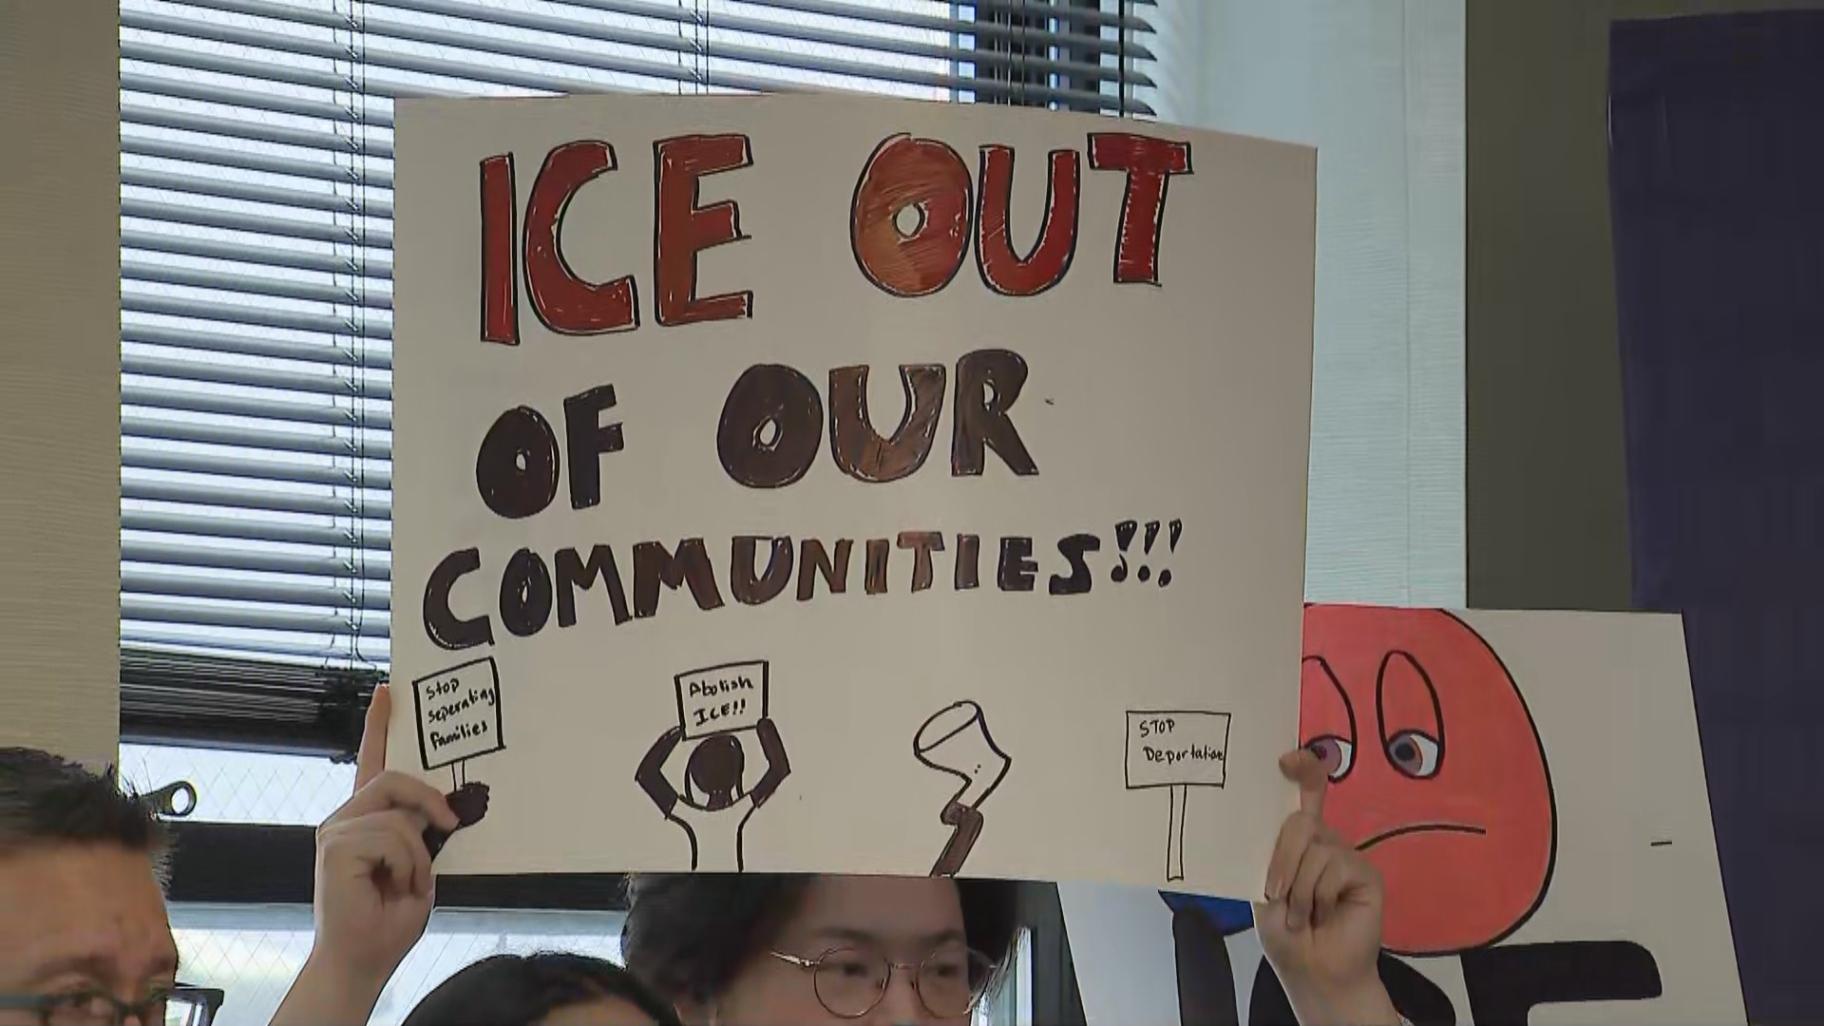 ICE OUT
OF OUR
COMMUNITIES!!!
Stop
Seperating
Families
Abolish
ICE!!
STOP
Deportation